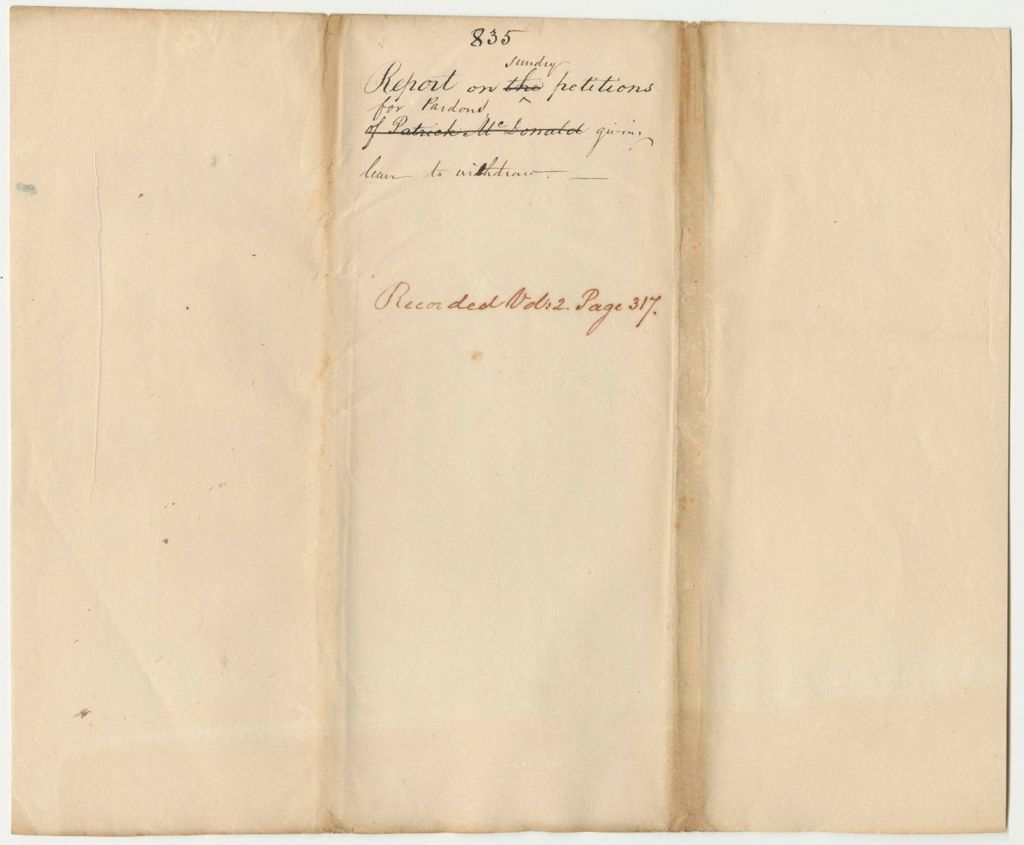 835
sundry
Report on the petitions
for Pardons
of Patrick McDonald giving
leave to withdraw. —
Recorded Vol: 2. Page 317.